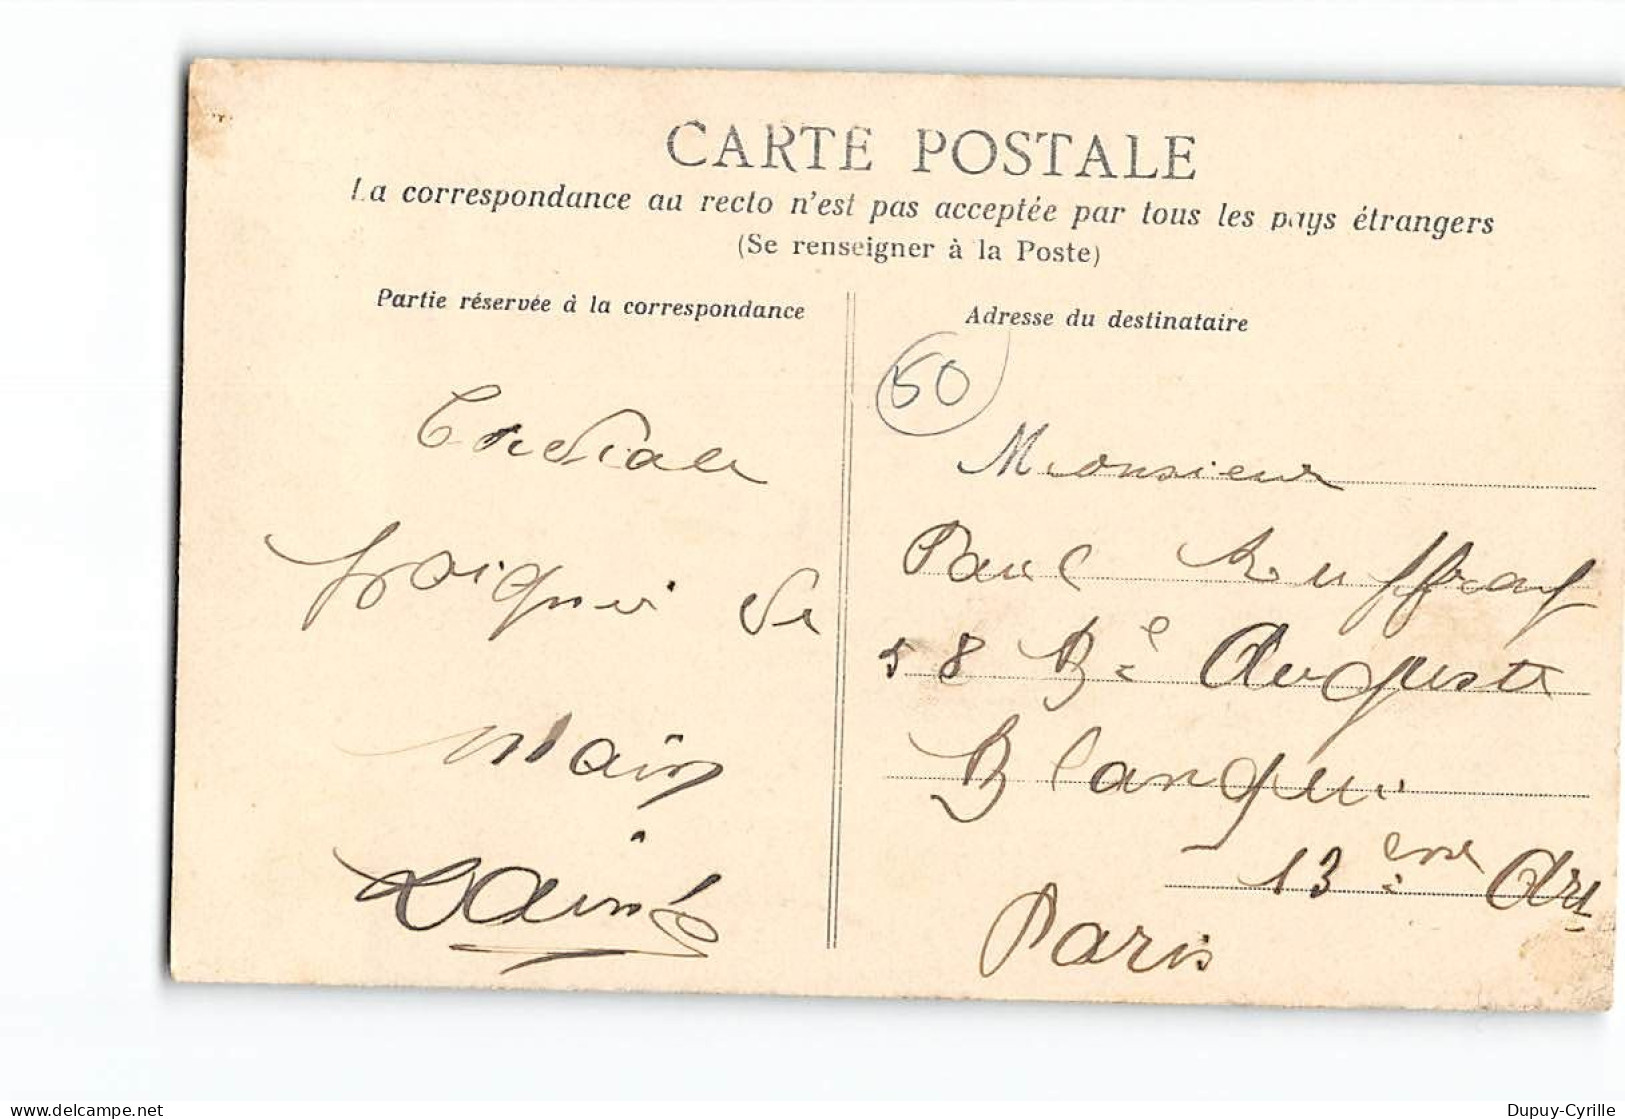 CARTE POSTALE
La correspondance au recto n'est pas acceptée par tous les pays étrangers
(Se renseigner à la Poste)
Partie réservée à la correspondance
Adresse du destinataire
50
Cordiale
poignée de
main
Monsieur
Paul
58 Bd Auguste
Blanqui
13ème Art
Paris
Dupuy-Cyrille